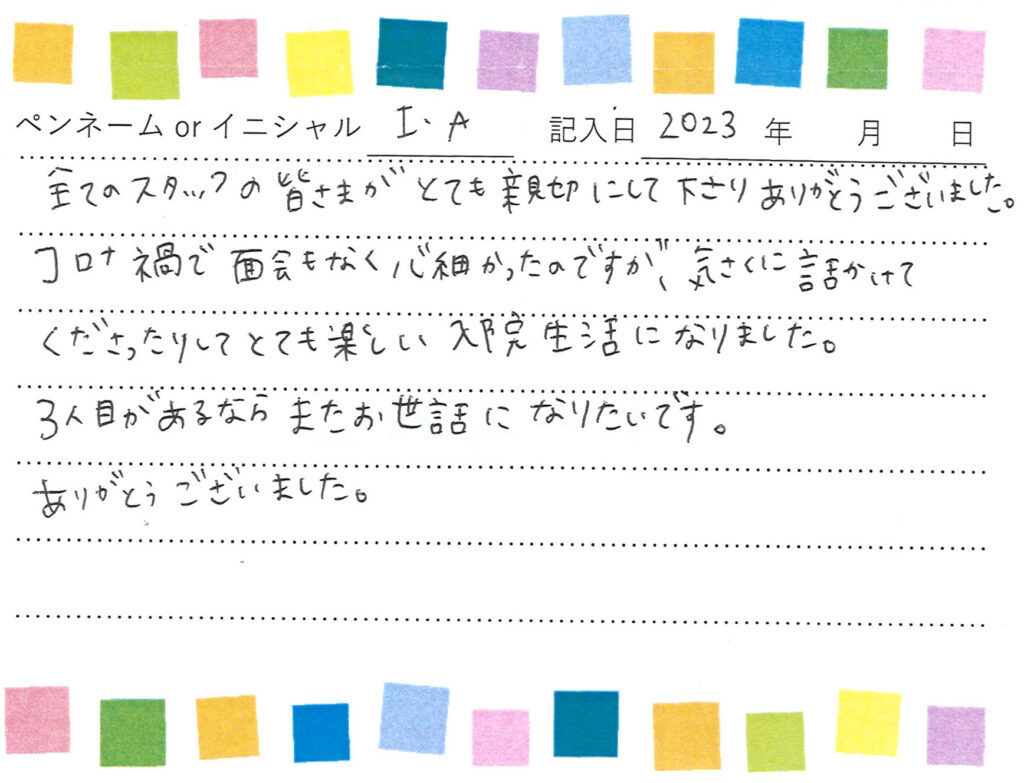 ペンネーム or イニシャル I.A 記入日 2023 年 月 日
全てのスタッフの皆さまがとても親切にして下さりありがとうございました。
コロナ禍で面会もなく心細かったのですが、気さくに話かけて
くださったりしてとても楽しい入院生活になりました。
3人目があるならまたお世話になりたいです。
ありがとうございました。